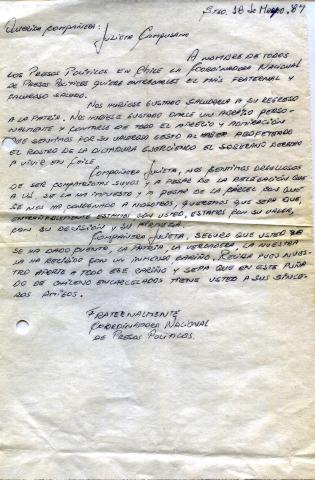 Stgo, 18 de Mayo, '87
Querida compañera:
Julieta Campusano
A nombre de todos
los Presos Políticos en Chile la Coordinadora Nacional
de Presos Políticos quiere entregarle el más fraternal y
caluroso saludo.
Nos hubiese gustado saludarla a su regreso
a la patria. Nos hubiese gustado darle un abrazo perso-
nalmente y contarle de todo el cariño y admiración
que sentimos por su valeroso gesto al haber abofeteado
el rostro de la dictadura ejerciendo el soberano derecho
a vivir en Chile.
Compañera Julieta, nos sentimos orgullosos
de ser compatriotas suyos y a pesar de la relegación que
a Ud. se la ha impuesto y a pesar de la cárcel con que
se nos ha condenado a nosotros, queremos que sepa que,
estamos con usted, estamos con su valor,
con su decisión y su
Compañera Julieta, seguro que usted ya
se ha dado cuenta. La patria, la verdadera, la nuestra
la ha recibido con un inmenso cariño. Reciba pues nues-
tro aporte a todo ese cariño y sepa que en este puña-
do de chilenos encarcelados tiene usted a sus since-
ros amigos.
Fraternalmente
Coordinadora Nacional
de Presos Políticos.